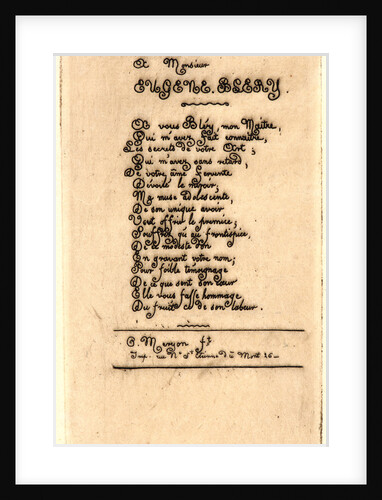 A Monsieur
EUGENE. BLERY.
A vous Bléry, mon Maître,
Qui m'avez fait connaître,
Les secrets de votre Art;
Qui m'avez sans retard,
De votre âme fervente
Dévoilé le miroir;
Ma muse adolescente,
De son unique avoir
Veut offrir le prémice;
Souffrez qu'au frontispice,
De ce modeste don
En gravant votre nom;
Pour foible témoignage
De ce que sent son cœur
Elle vous fasse hommage
Du fruit de son labeur.
C. Meryon ft
Imp. rue Ne St Etienne du Mont 26